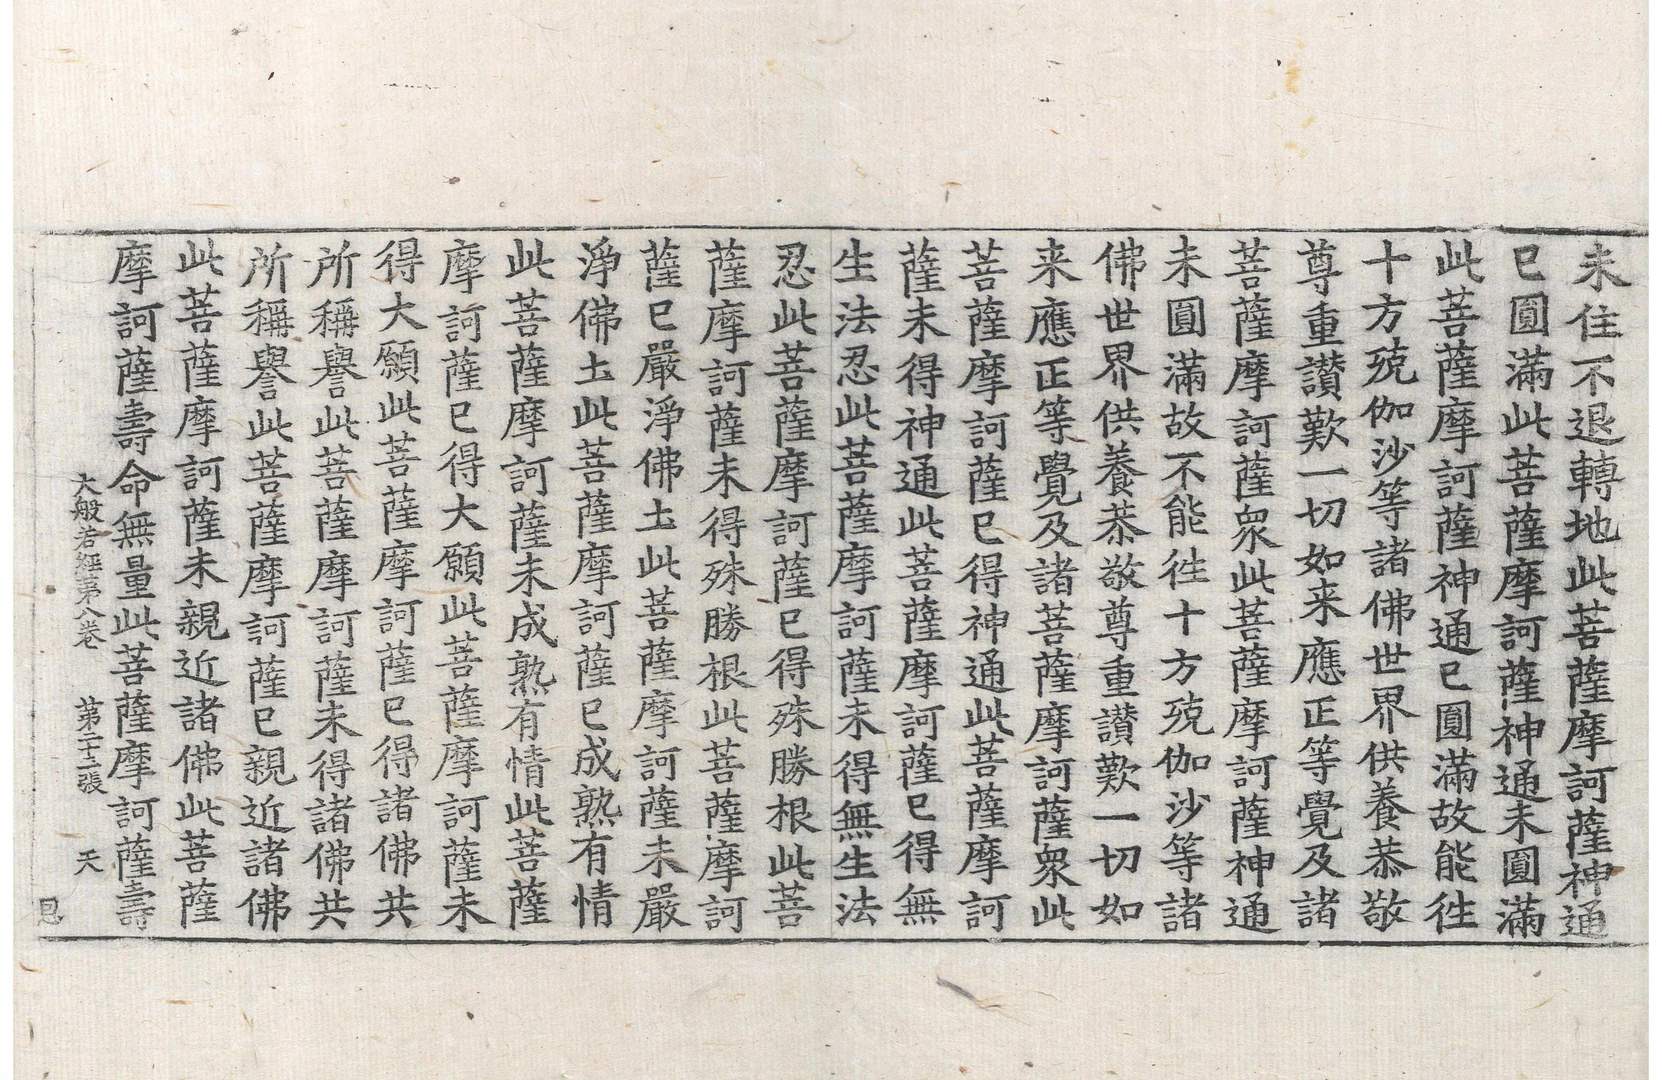 未住不退轉地此菩薩摩訶薩神通
已圓滿此菩薩摩訶薩神通未圓滿
此菩薩摩訶薩神通已圓滿故能徃
十方殑伽沙等諸佛世界供養恭敬
尊重讚歎一切如来應正等覺及諸
菩薩摩訶薩衆此菩薩摩訶薩神通
未圓滿故不能徃十方殑伽沙等諸
佛世界供養恭敬尊重讚歎一切如
来應正等覺及諸菩薩摩訶薩衆此
菩薩摩訶薩已得神通此菩薩摩訶
薩未得神通此菩薩摩訶薩已得無
生法忍此菩薩摩訶薩未得無生法
忍此菩薩摩訶薩已得殊勝根此菩
薩摩訶薩未得殊勝根此菩薩摩訶
薩已嚴淨佛土此菩薩摩訶薩未嚴
淨佛土此菩薩摩訶薩已成熟有情
此菩薩摩訶薩未成熟有情此菩薩
摩訶薩已得大願此菩薩摩訶薩未
得大願此菩薩摩訶薩已得諸佛共
所稱譽此菩薩摩訶薩未得諸佛共
所稱譽此菩薩摩訶薩已親近諸佛
此菩薩摩訶薩未親近諸佛此菩薩
摩訶薩壽命無量此菩薩摩訶薩壽
大般若經第八卷 第二十二張 天